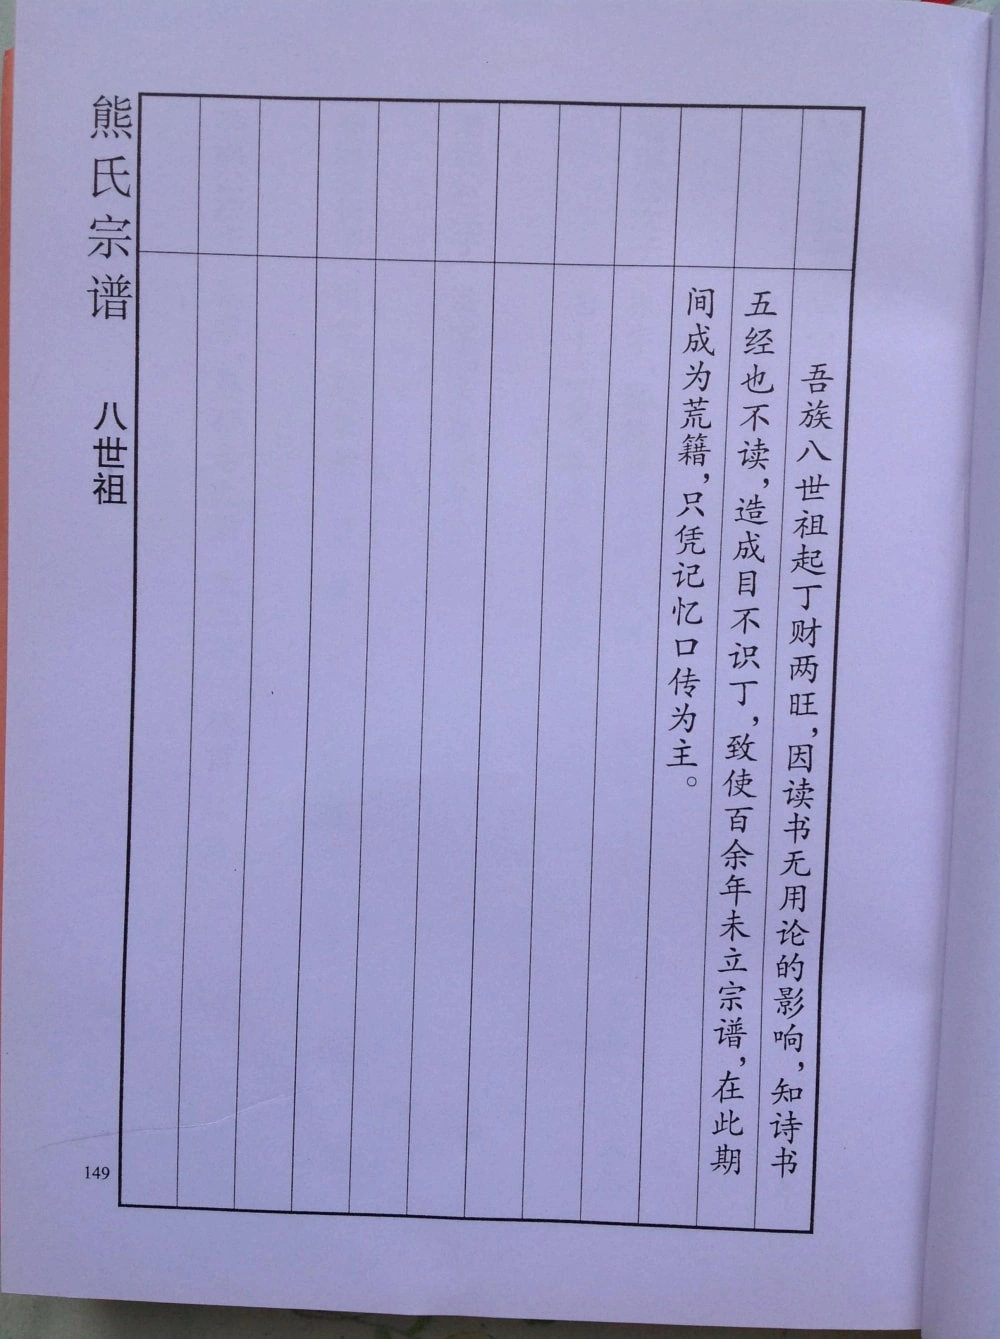 吾族八世祖起丁财两旺，因读书无用论的影响，知诗书
五经也不读，造成目不识丁，致使百余年未立宗谱，在此期
间成为荒籍，只凭记忆口传为主。
熊氏宗谱
八世祖
149